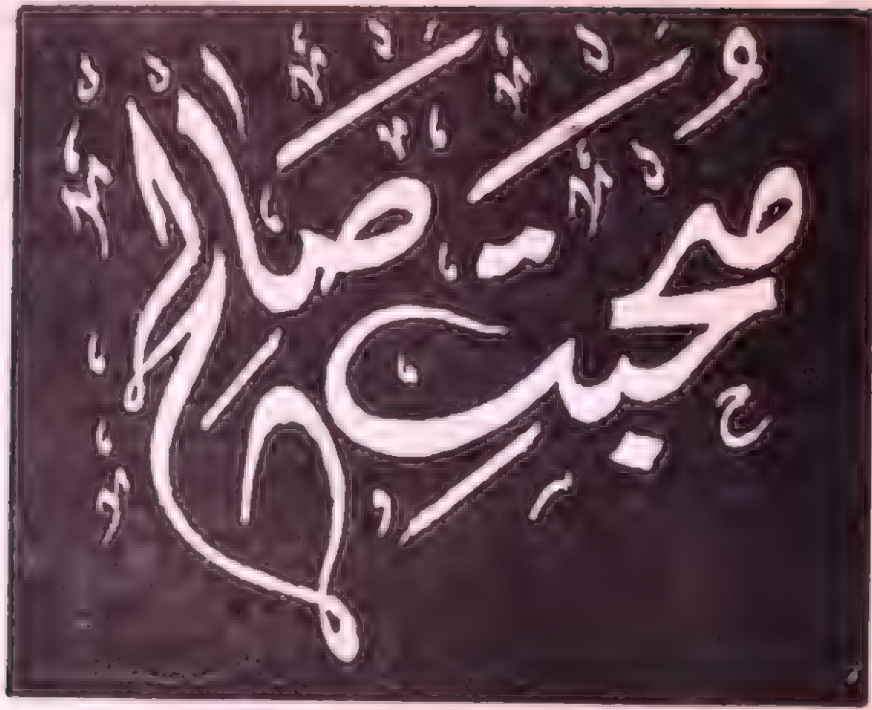 صُحبتِ صالح